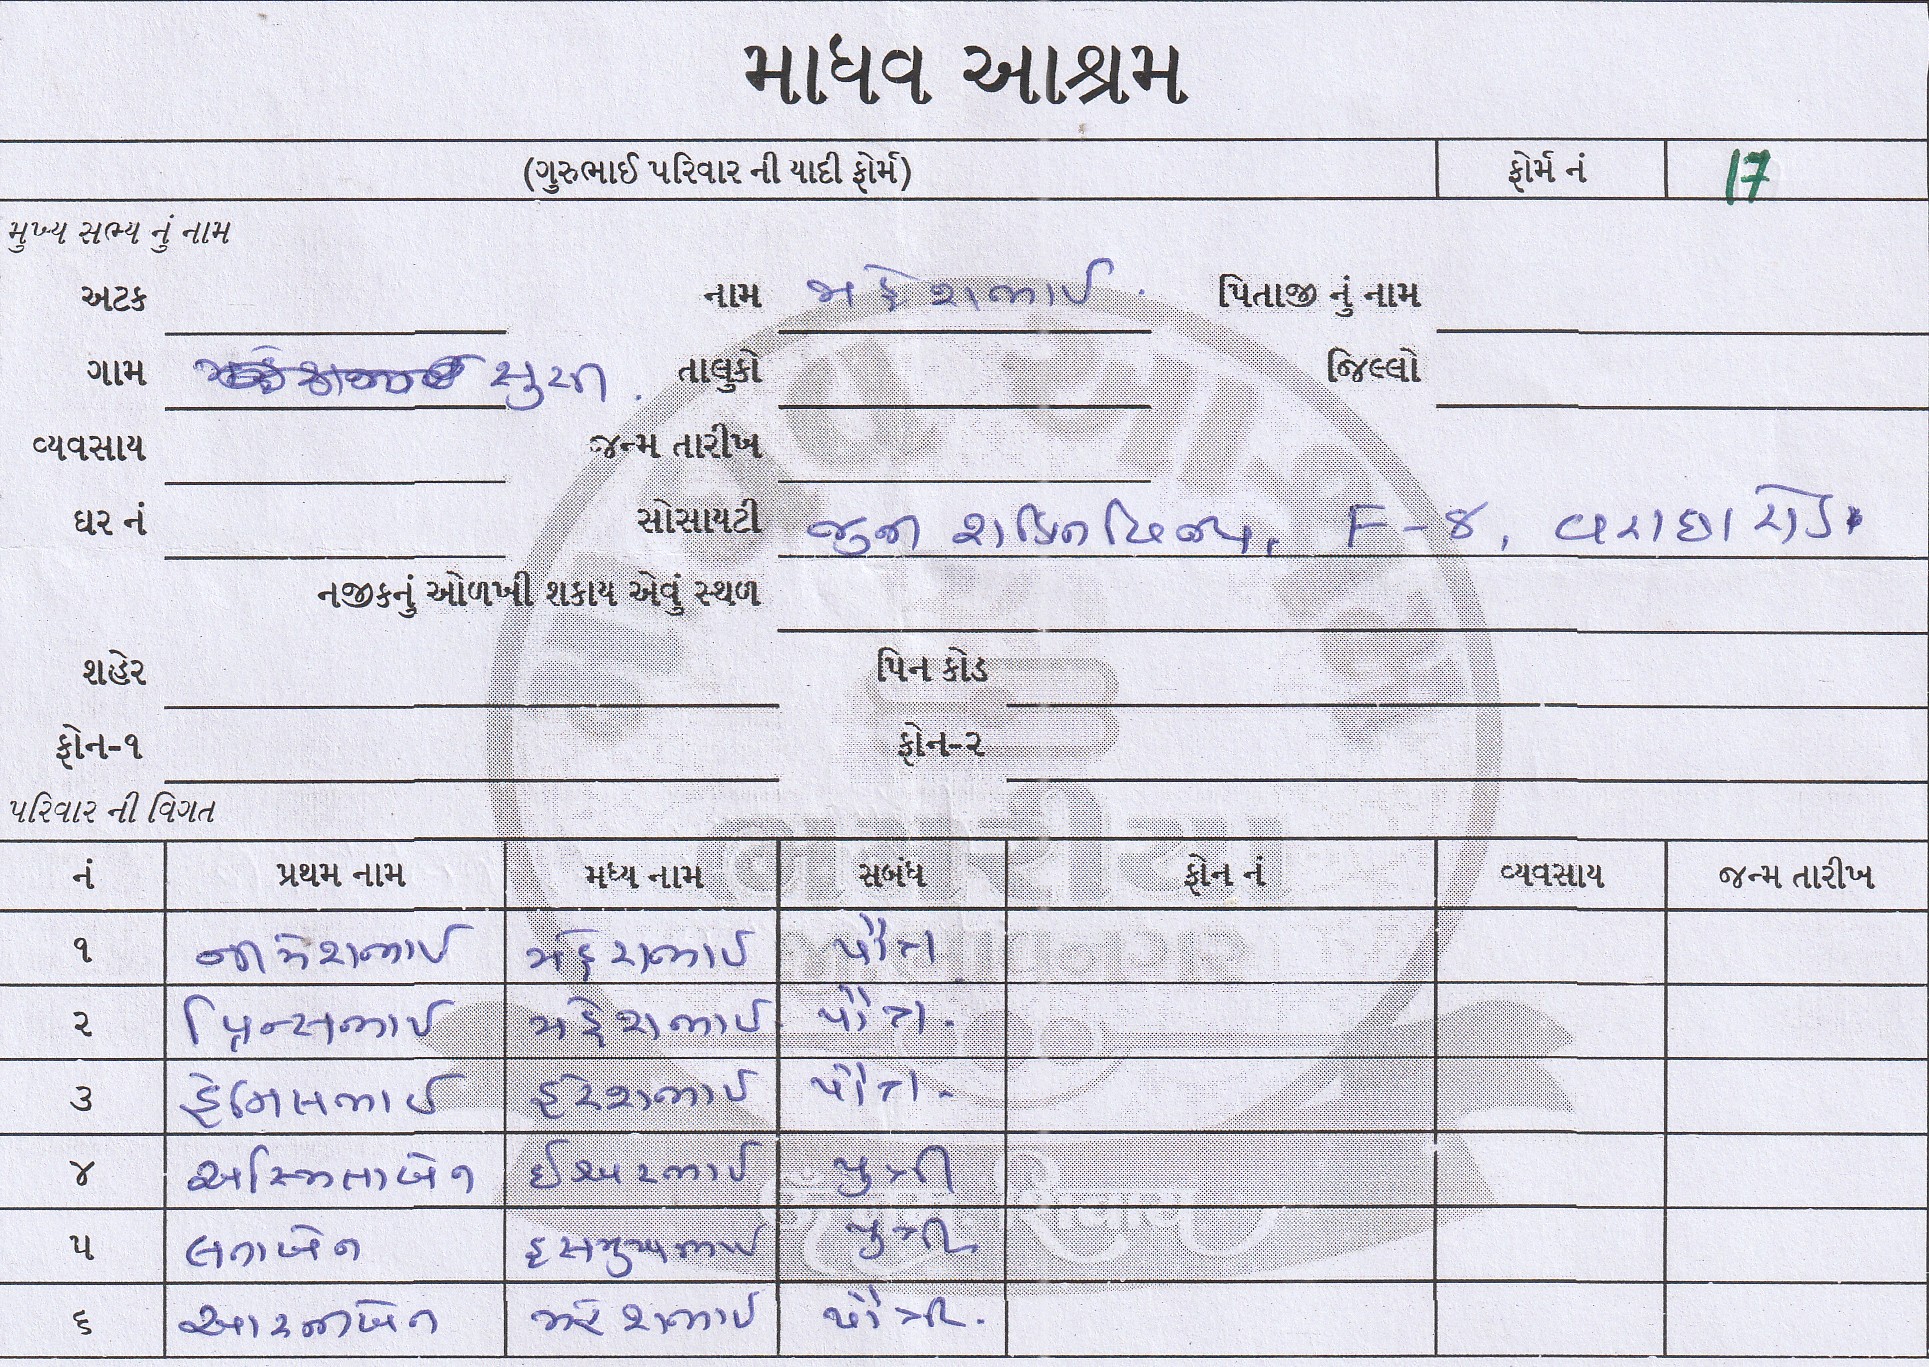 માધવ આશ્રમ
(ગુરુભાઈ પરિવાર ની યાદી ફોર્મ) ફોર્મ નં 17
મુખ્ય સભ્ય નું નામ
અટક નામ મહેશભાઈ . પિતાજી નું નામ
ગામ તાલુકો જિલ્લો
વ્યવસાય જન્મ તારીખ
ઘર નં સોસાયટી જુની શક્તિવિજય, F-૪, વરાછા રોડ
નજીકનું ઓળખી શકાય એવું સ્થળ
શહેર પિન કોડ
ફોન-૧ ફોન-૨
પરિવાર ની વિગત
નં પ્રથમ નામ મધ્ય નામ સબંધ ફોન નં વ્યવસાય જન્મ તારીખ
૧ મહેશભાઈ પૌત્ર
૨ પ્રિન્સભાઈ મહેશભાઈ પૌત્ર.
૩ હેમિલભાઈ હરેશભાઈ પૌત્ર.
૪ અસ્મિતાબેન પુત્રી
૫ લતાબેન હસમુખભાઈ પુત્રી
૬ આરતીબેન પૌત્રી.